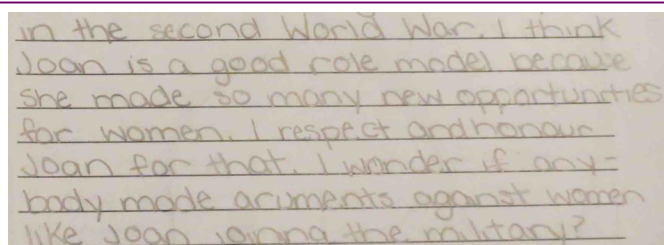 in the second World War. I think
Joan is a good role model because
she made so many new opportuncties
for women. I respect and honour
Joan for that. I wonder if any-
body made aruments against women
like Joan joinng the military?